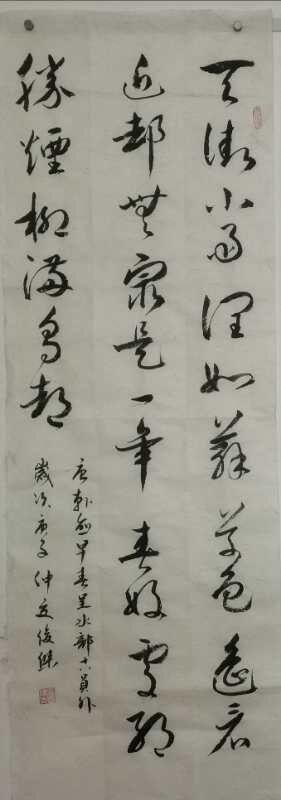 天街小雨潤如蘇草色遙看
近却無最是一年春好處絕
勝煙柳滿皇都
唐韓愈早春呈水部十八員外
歲次庚子仲夏俊傑